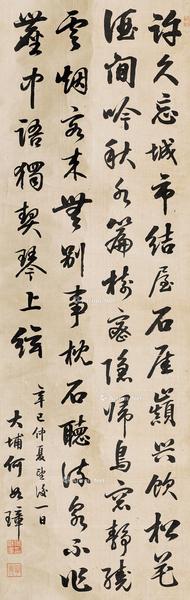 許久忘城市結屋石厓巔興飲松花
酒閒吟秋水篇樹密隱歸鳥窓靜
雲烟客來無別事枕石聽流泉不作
塵中語獨契琴上絃
辛巳仲夏望後一日
大埔何如璋